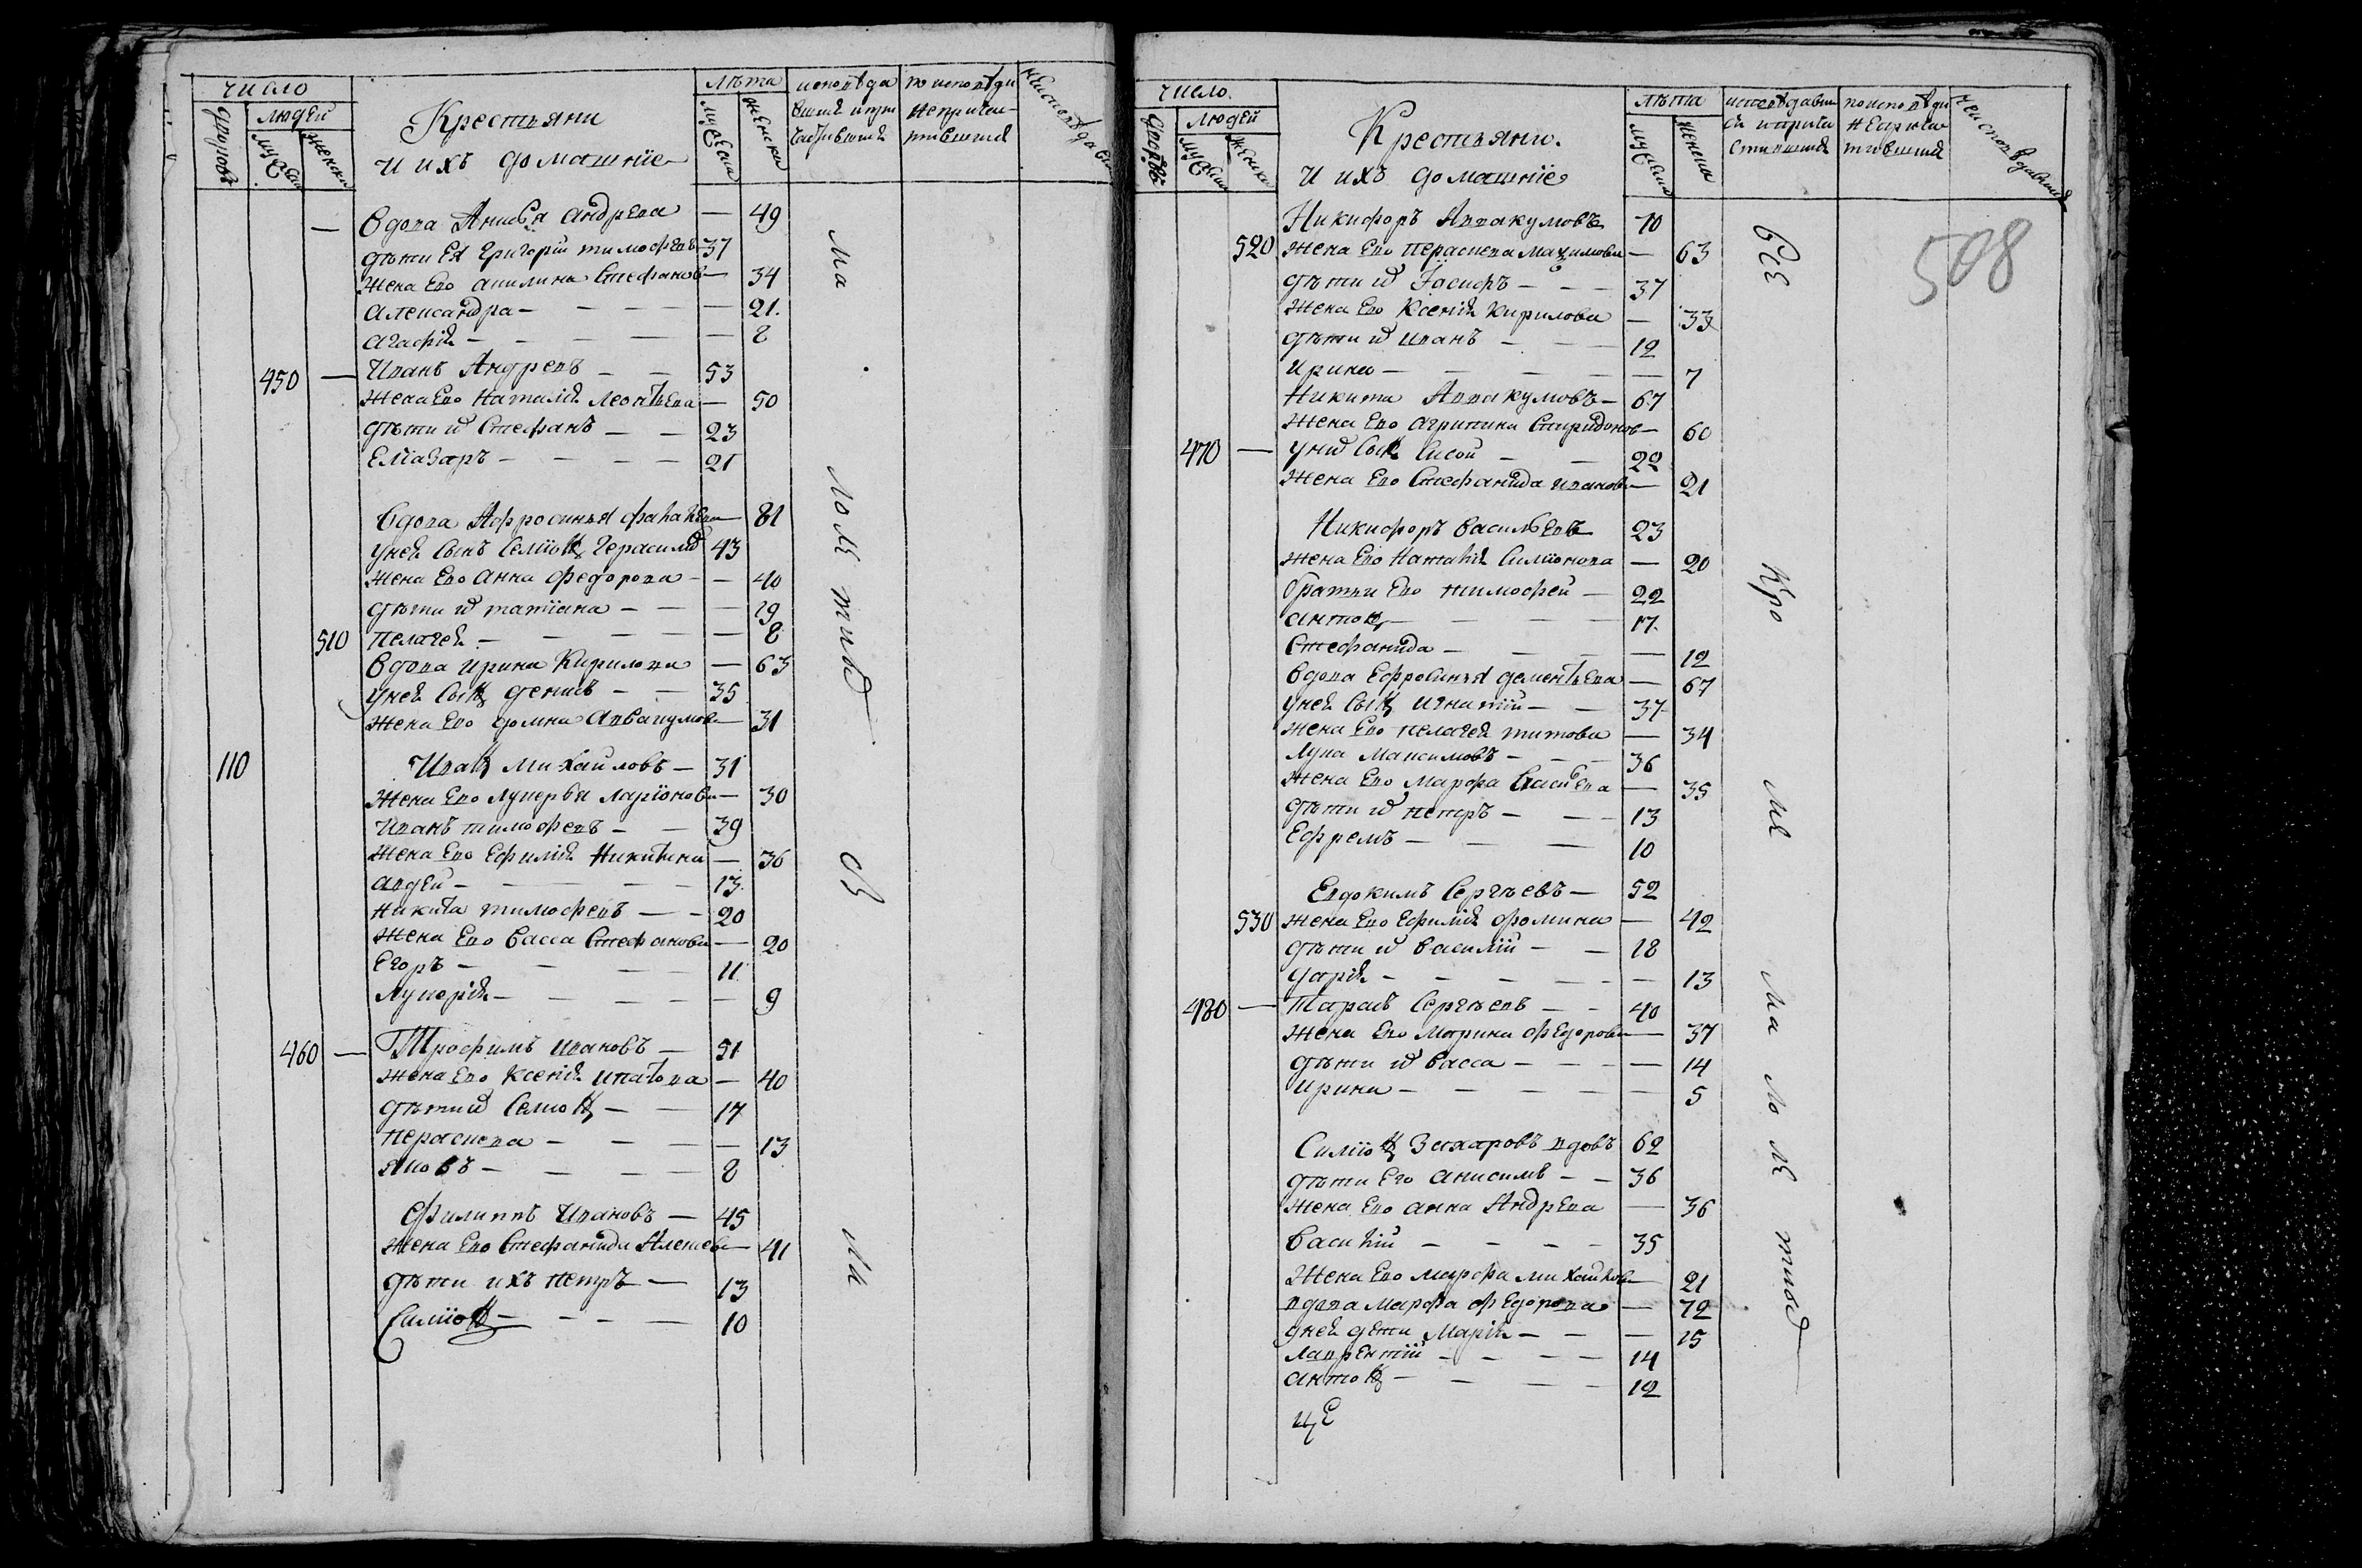 число
людей
дворовъ
мужеска
женска
Крестьяни
и ихъ домашніе
лѣта
мужеска
женска
исповѣда
вшия и при
частившия
по исповѣди
неприча
тившия
неисповѣдавш
— вдова Анисья андрева — 49
дѣти Ея григорій тимофѣевъ 37
жена Ево акилина Стефанова — 34
александра — 21.
агафія — 8
450 — Иванъ Андревъ — 53
жена Ево Наталія Леонтьева — 50
дѣти их Стефанъ — 23
Елиазаръ — 21
вдова Афросинья — 81
у ней сынъ Семіон Герасимо 43
жена Ево анна федорова — 40
дѣти их татіана — 19
510 пелагея — 8
вдова ирина Кирилова — 63
у ней сын денисъ — 35
жена Ево домна Аввакумова — 31
110 Иван михаиловъ — 31
жена Ево лукерья ларіонова — 30
Иванъ тимофевъ — 39
жена Ево Ефимія Никитина — 36
авдей — 13.
никита тимофевъ — 20
жена Ево васса Стефанова — 20
Егоръ — 11
лукерія — 9
460 — Трофимъ ивановъ — 51
жена Ево Ксенія ипатова — 40
дѣти их Семион — 17
пераскева — 13
яковъ — 8
Филиппъ Ивановъ — 45
жена Ево Стефанида Алексева — 41
дѣти ихъ петръ — 13
Симіон — 10
ма
лол
тис
св
ли
число.
людей
дворовъ
мужеска
женска
Крестьяни.
и ихъ домашніе
лѣта
мужеска
женска
исповѣдавши
ся и прича
стившия
по исповѣди
неприча
тившия
неисповѣдавшия
508
Никифоръ Аввакумовъ 70
520 жена Ево пераскева максимова — 63
дѣти их Iосифъ — 37
жена Ево Ксенія Кирилова — 33
дѣти их иванъ — 12
ирина — 7
Никита Аввакумовъ — 67
жена Ево агрипина Спиридонова — 60
470 — у них сын Сисой — 22
жена Ево Стефанида иванова — 21
Никифоръ васильевъ 23
жена Ево Наталія Симіонова — 20
братья Ево тимофей — 22
антон — 17.
Стефанида — 12
вдова Ефросинья дементьева — 67
у ней сын игнатій — 37
жена Ево пелагея титова — 34
лука максимовъ — 36
жена Ево марфа — 35
дѣти их петръ — 13
Ефремъ — 10
Евдокимъ Сергѣевъ — 52
530 жена Ево Ефимія фомина — 42
дѣти их василій — 18
дарія — 13
480 — Тарасъ Сергѣевъ — 40
жена Ево Марина федорова — 37
дѣти их васса — 14
ирина — 5
Симіон Захаровъ вдовъ 62
дѣти Его анисимъ — 36
жена Ево анна Андрева — 36
василій — 35
жена Ево марфа михайлова — 21
вдова марфа федорова — 72
у ней дети Марія — 15
лаврентій — 14
антон — 12